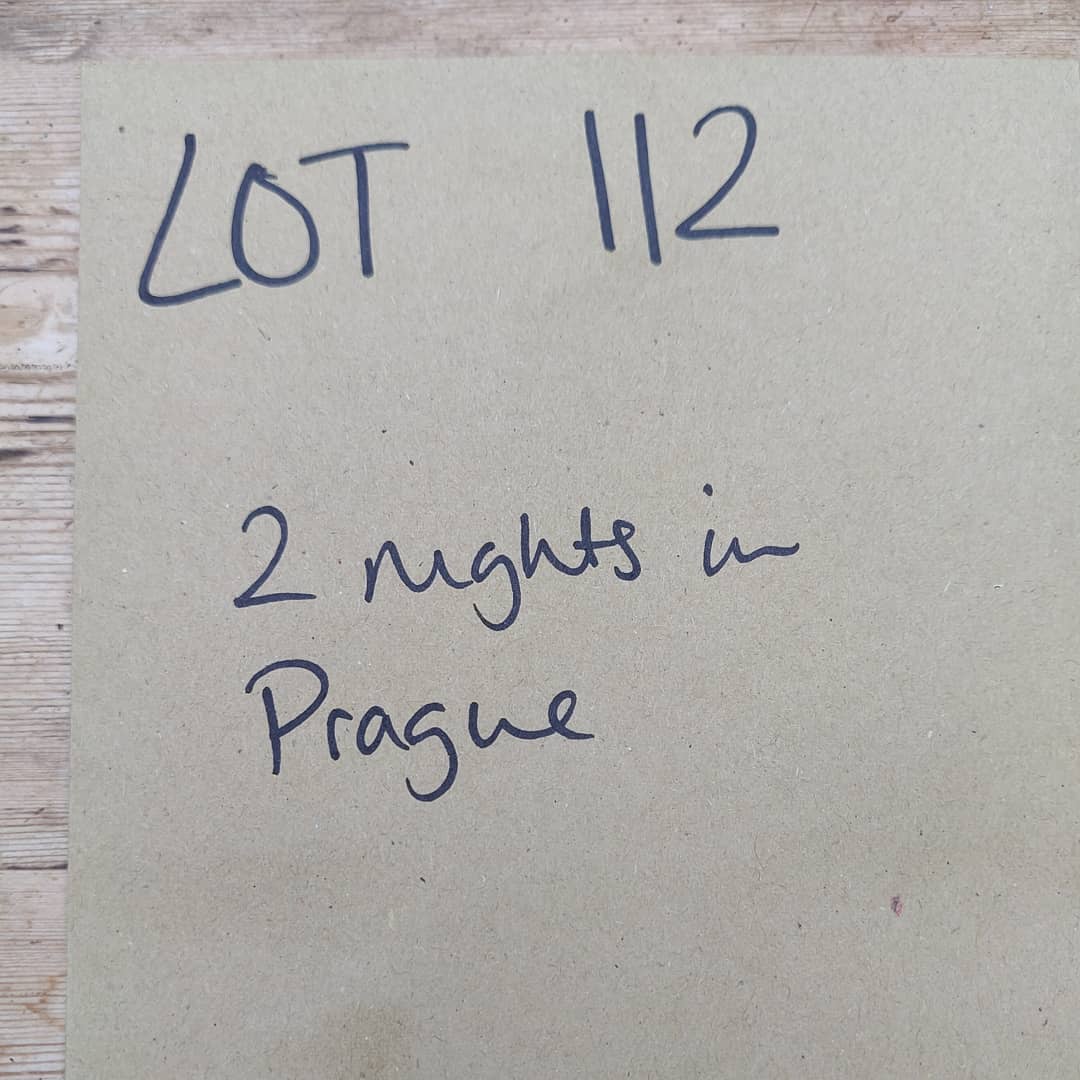 LOT 112
2 nights in
Prague